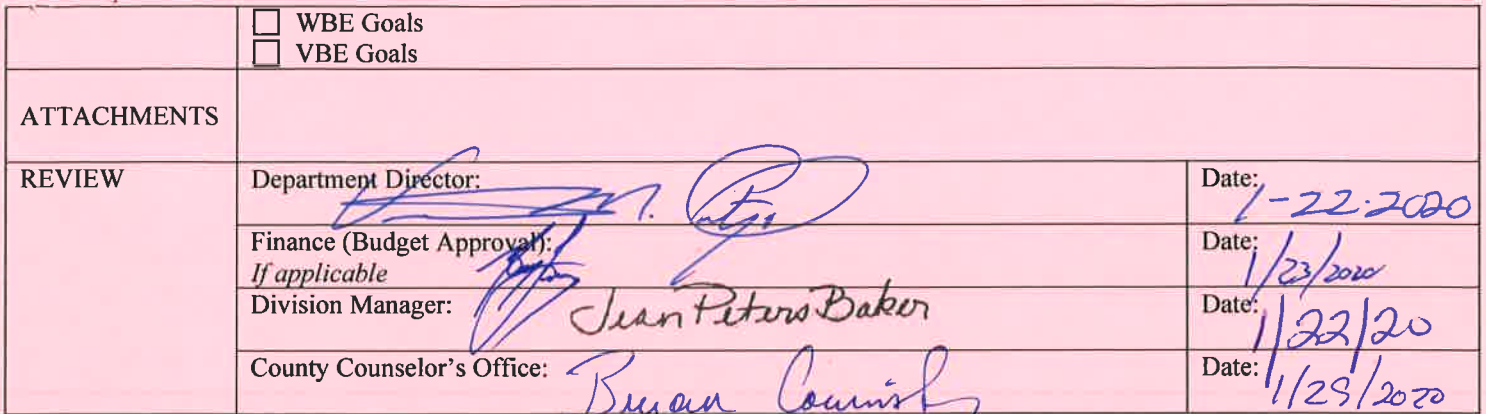 ☐ WBE Goals
☐ VBE Goals
ATTACHMENTS
REVIEW
Department Director:
Date: 1-22-2020
Finance (Budget Approval):
If applicable
Date: 1/23/2020
Division Manager: Jean Peters Baker
Date: 1/22/20
County Counselor's Office: Bryan
Date: 1/29/2020